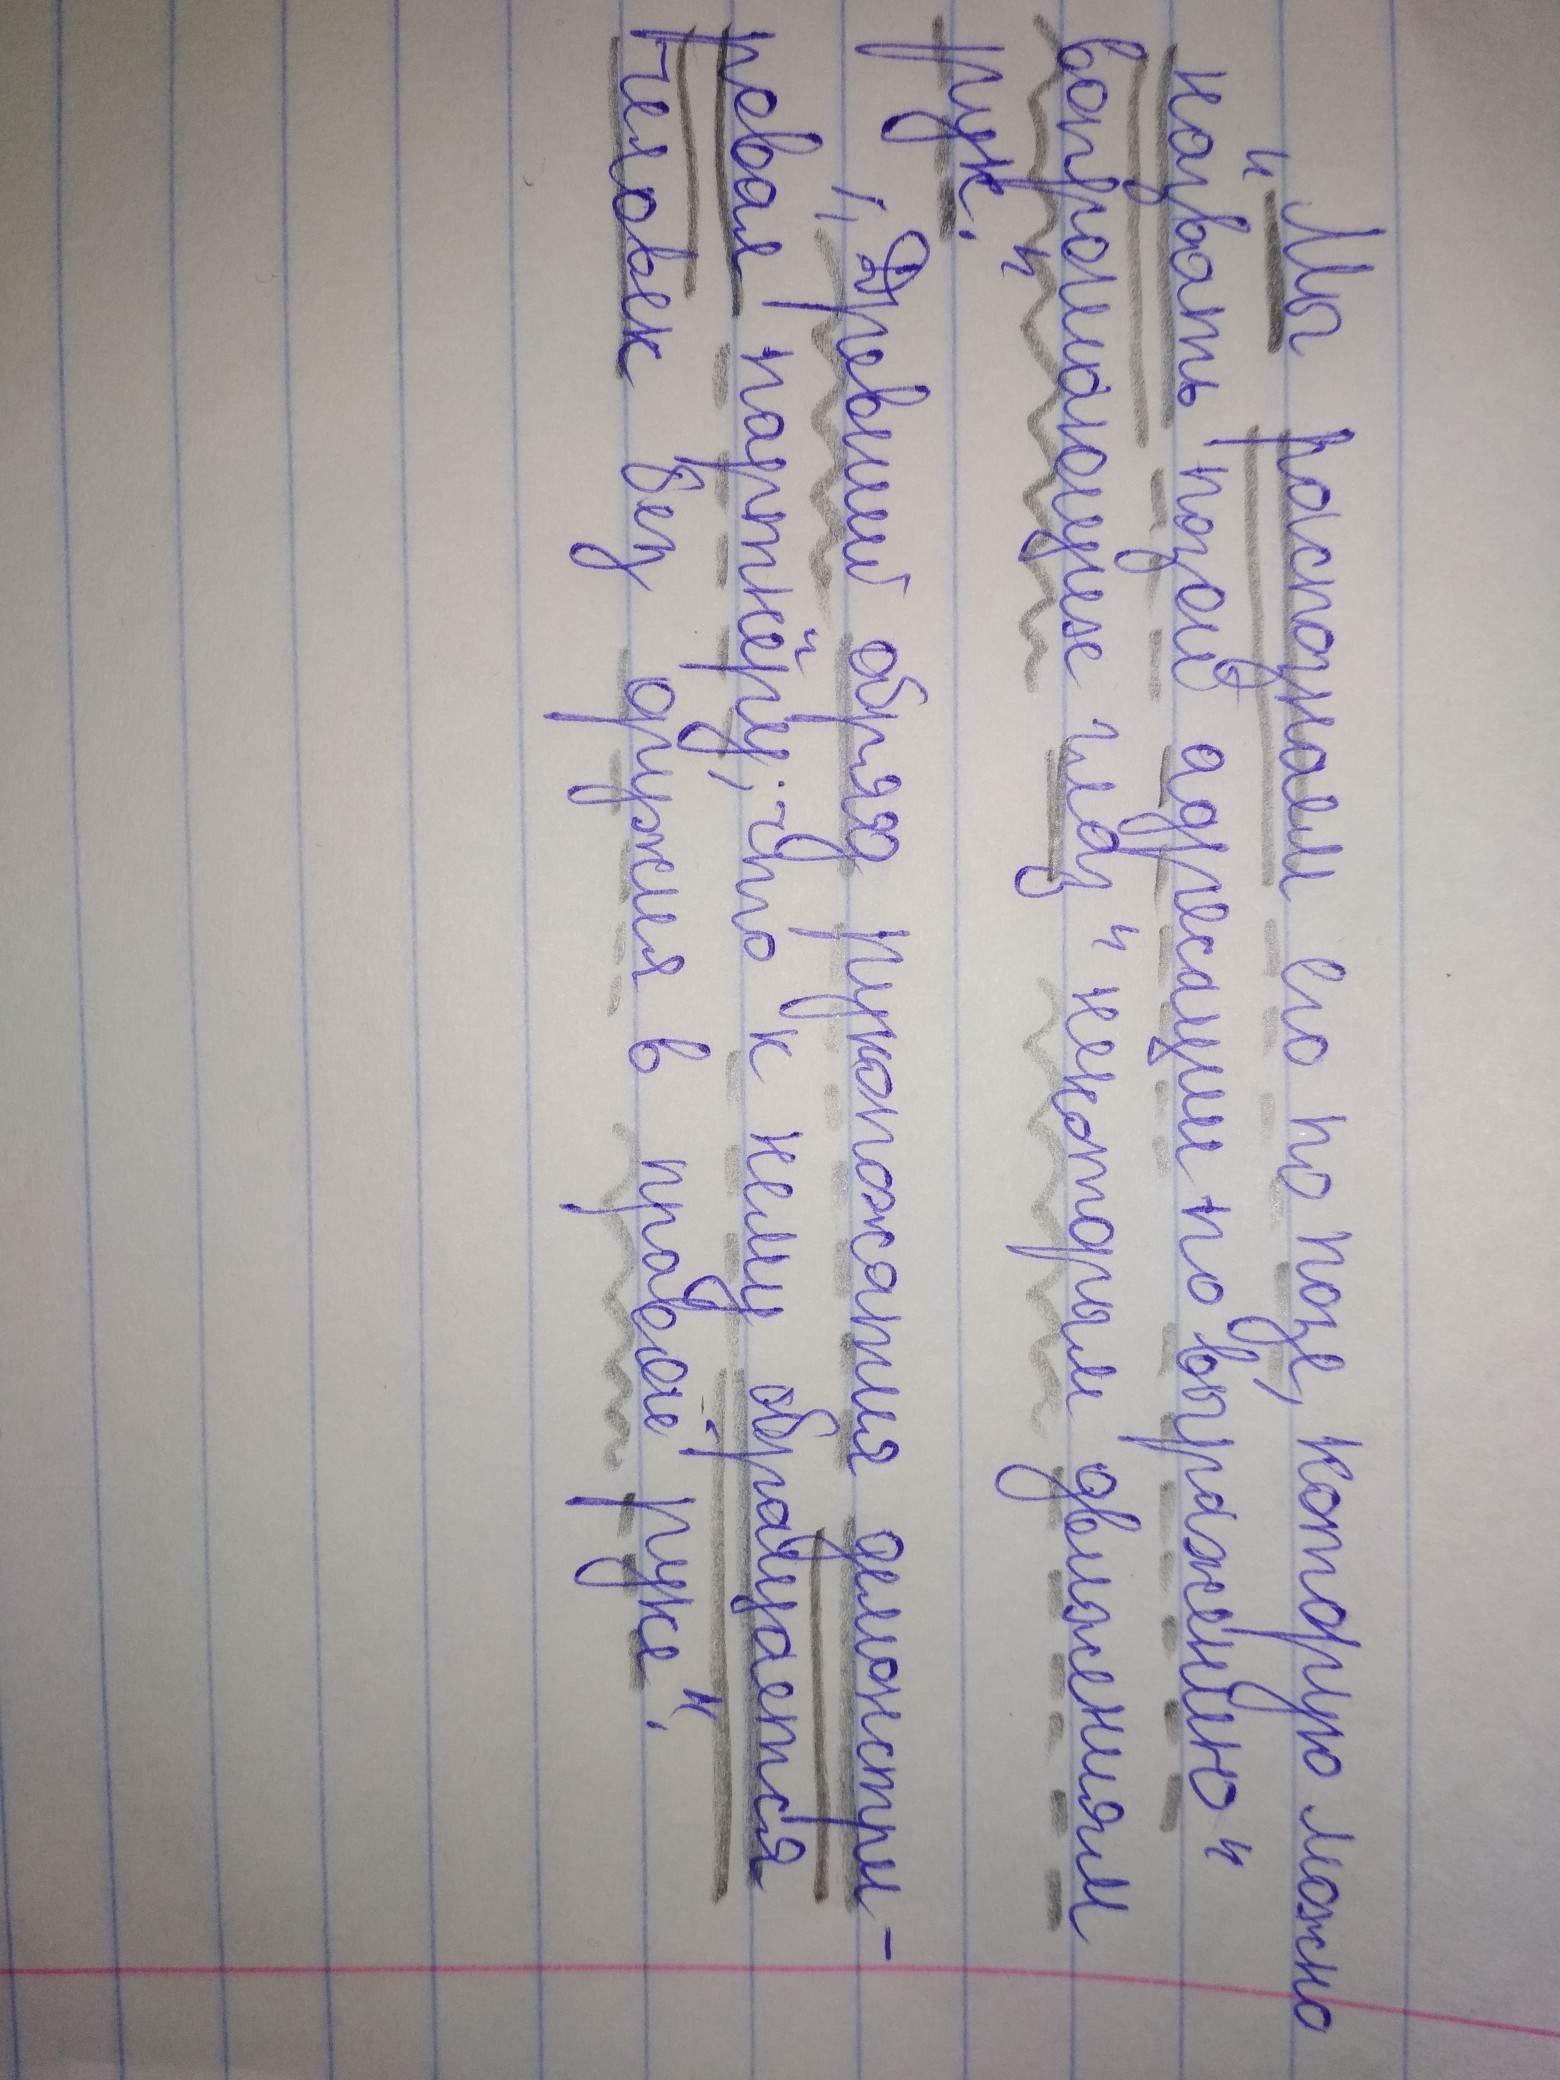 Мы распознаем его по позе, которую можно
назвать "позой адресации по выражению"
вопрошающее глаз" некоторым движениям
рук."
„Древний обряд рукопожатия демонстри-
ровал партнёру", что к нему обращается
человек без оружия в правой руке".